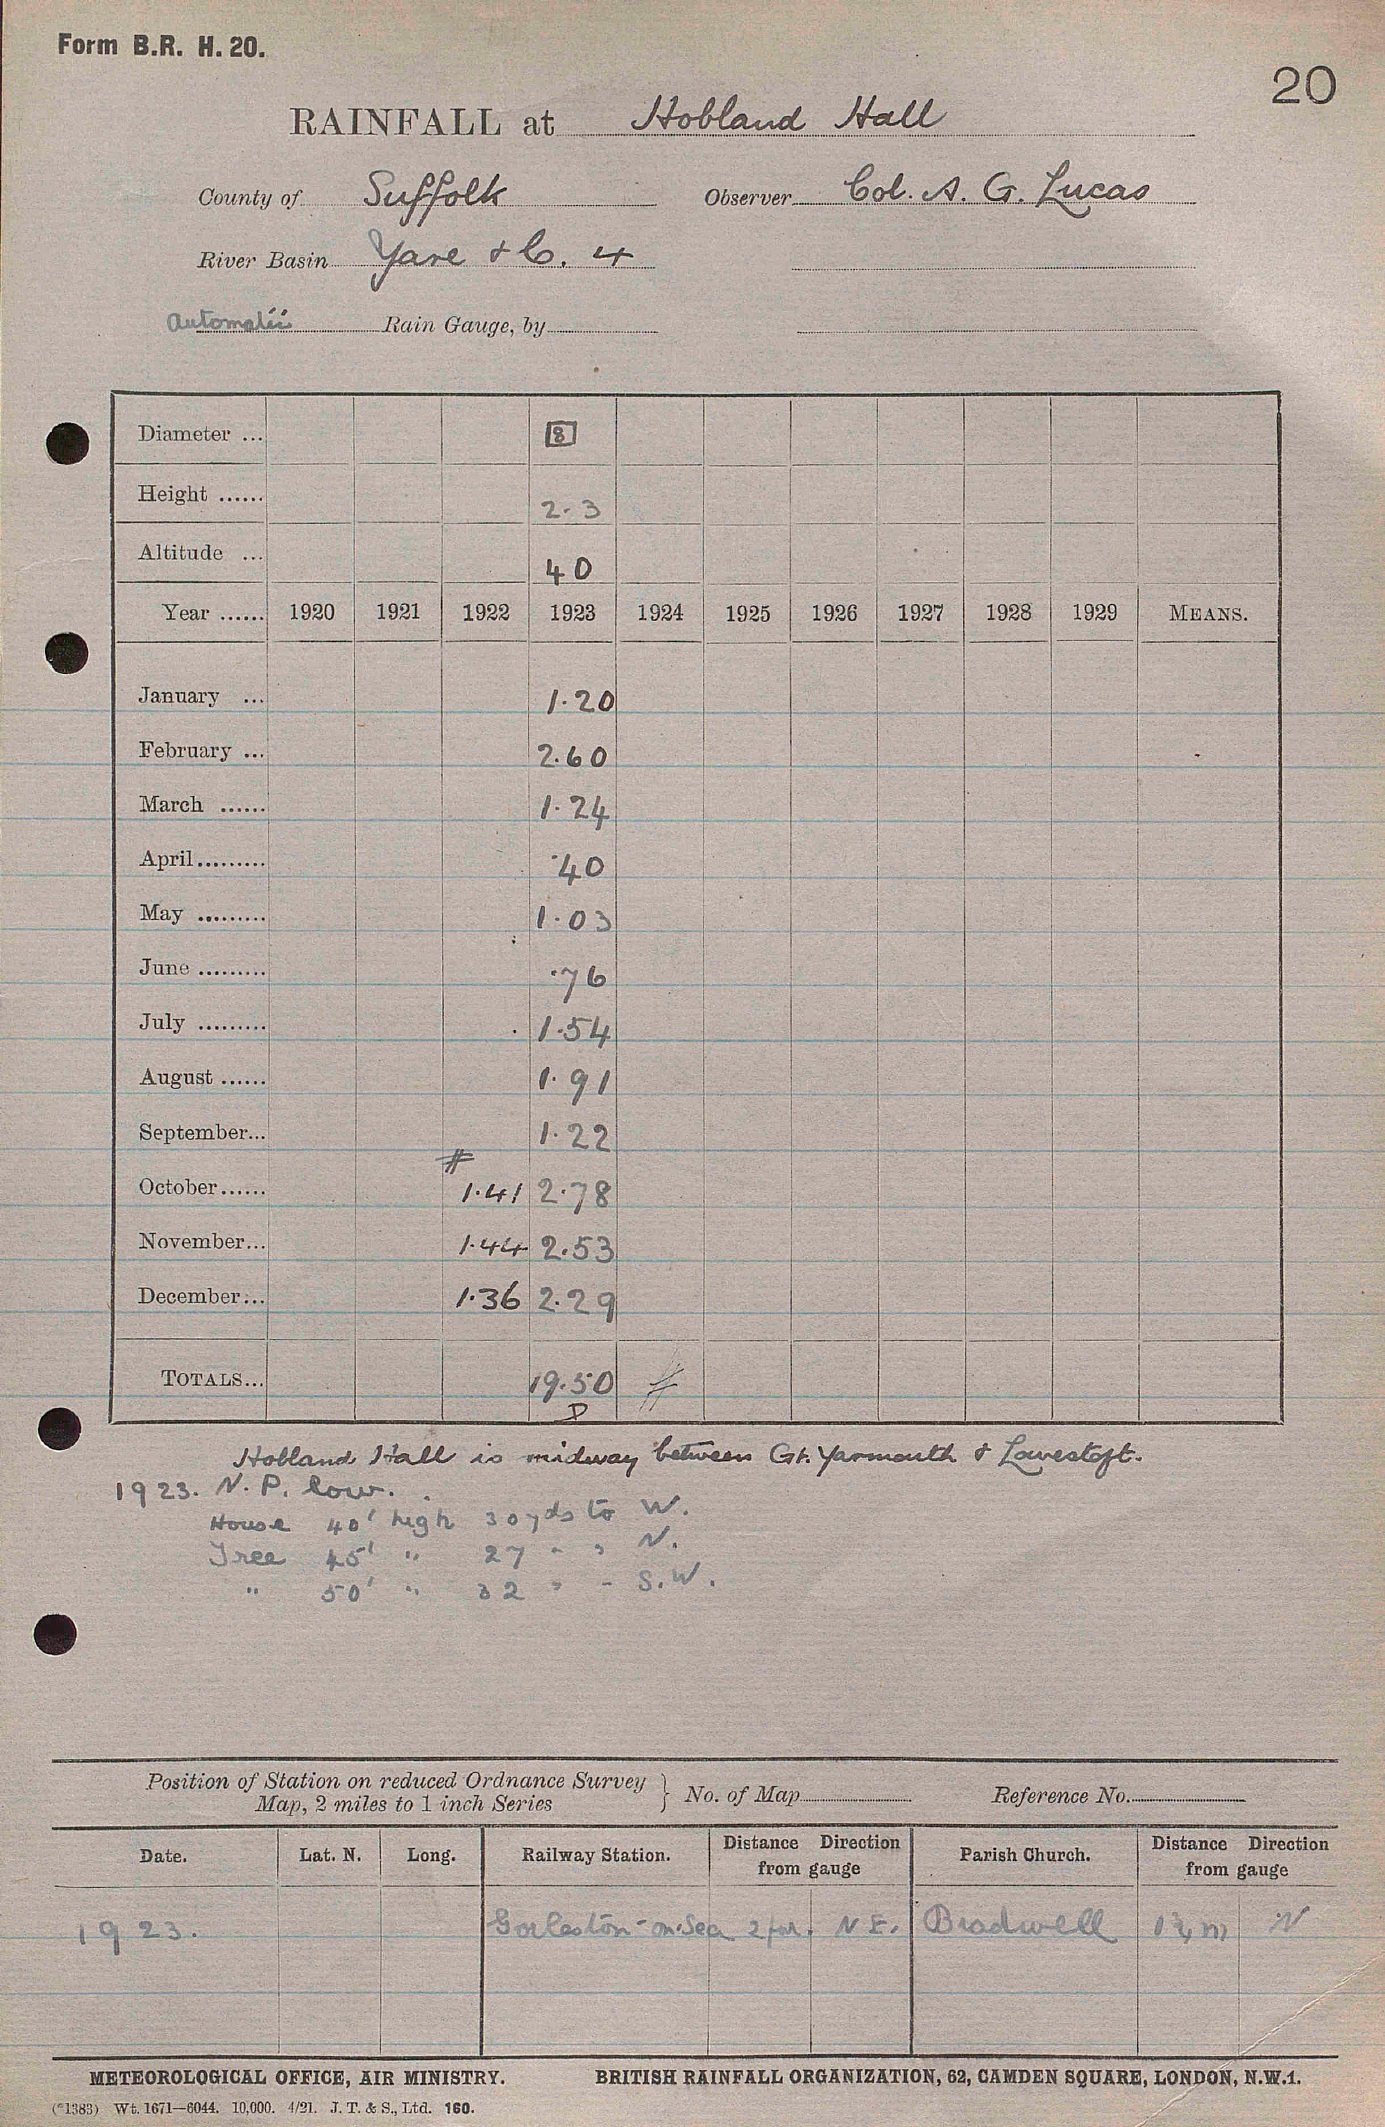 Form B.R. H. 20.
20
RAINFALL at Hobland Hall
County of Suffolk Observer Col. A. G. Lucas
River Basin Yare & C. 4
Automatic Rain Gauge, by
Diameter ... 8
Height ...... 2.3
Altitude ... 40
Year ...... 1920 1921 1922 1923 1924 1925 1926 1927 1928 1929 MEANS.
January ... 1.20
February ... 2.60
March ...... 1.24
April......... .40
May ......... 1.03
June ......... .76
July ......... 1.54
August ...... 1.91
September... 1.22
#
October...... 1.41 2.78
November... 1.44 2.53
December... 1.36 2.29
TOTALS... 19.50 #
D
Hobland Hall is midway between Gt. Yarmouth & Lowestoft.
1923. N. P. low.
House 40' high 30 yds to W.
Tree 45' " 27 " " N.
" 50' " 32 " " S.W.
Position of Station on reduced Ordnance Survey } No. of Map Reference No.
Map, 2 miles to 1 inch Series
Date. Lat. N. Long. Railway Station. Distance Direction Parish Church. Distance Direction
from gauge from gauge
1923. Gorleston-on-Sea 2 fur. N E. Bradwell m N
METEOROLOGICAL OFFICE, AIR MINISTRY. BRITISH RAINFALL ORGANIZATION, 62, CAMDEN SQUARE, LONDON, N.W.1.
(*1383) Wt. 1671—6044. 10,000. 4/21. J. T. & S., Ltd. 160.